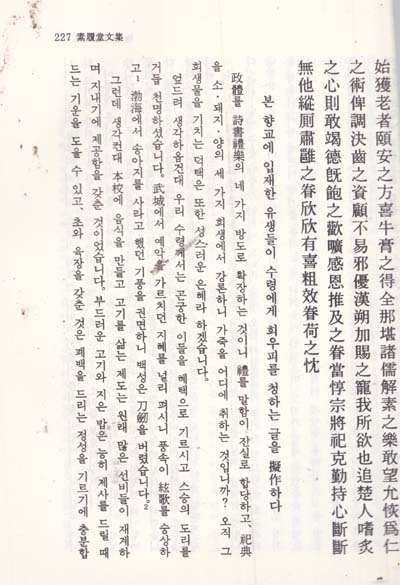 227 素履堂文集
始獲老者頤安之方喜牛膏之得全那堪諸儒解素之樂敢望允恢爲仁
之術俾調決齒之資顧不易邪優漢朔加賜之寵我所欲也追楚人嗜炙
之心則敢竭德旣飽之歡曠感恩推及之眷當惇宗將祀克勤持心斷斷
無他縱厠肅雝之眷欣欣有喜粗效眷荷之忱
본 향교에 입재한 유생들이 수령에게 희우피를 청하는 글을 擬作하다
政體를 詩書禮樂의 네 가지 방도로 확장하는 것이니 禮를 말함이 진실로 합당하고, 祀典
을 소·돼지·양의 세 가지 희생에서 강론하니 가죽을 어디에 취하는 것입니까? 오직 그
희생물을 기치는 덕택은 또한 성스러운 은혜라 하겠습니다.
엎드려 생각하옵건대 우리 수령께서는 곤궁한 이들을 혜택으로 기르시고 스승의 도리를
거듭 천명하셨습니다. 武城에서 예악을 가르친 지혜를 널리 펴시니 풍속이 絃歌를 숭상하
고¹ 渤海에서 송아지를 사라고 했던 기풍을 권면하니 백성은 刀劒을 버렸습니다.²
그런데 생각컨대 本校에 음식을 만들고 고기를 삶는 제도는 원래 많은 선비들이 재계하
며 지내기에 제공함을 갖춘 것이었습니다. 부드러운 고기와 지은 밥은 능히 제사를 드릴 때
드는 기운을 도울 수 있고, 초와 육장을 갖춘 것은 폐백을 드리는 정성을 기르기에 충분합